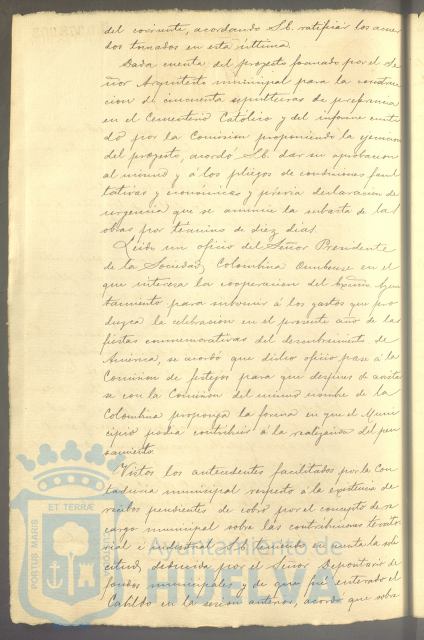 del corriente, acordando S.E. ratificar los acuer
dos tomados en esta última.
Dada cuenta del proyecto formado por el Se
ñor Arquitecto municipal para la construc
cion de cincuenta sepulturas de preferencia
en el Cementerio Católico y del informe emiti
do por la Comision proponiendo la
del proyecto, acordó S.E. dar su aprobacion
al mismo y á los pliegos de condiciones facul
tativas y económicas y previa declaracion de
urgencia que se anuncie la subasta de las
obras por término de diez dias.
Leido un oficio del Señor Presidente
de la Sociedad Colombina Onubense en el
que interesa la cooperacion del Excmo. Ayun
tamiento para subvenir á los gastos que pro
duzca la celebracion en el presente año de las
fiestas conmemorativas del descubrimiento de
América, se acordó que dicho oficio pase á la
Comision de festejos para que despues de
se con la Comision del mismo nombre de la
Colombina proponga la forma en que el Muni
cipio podrá contribuir á la realizacion del pen
samiento.
Vistos los antecedentes facilitados por la Con
taduria municipal respecto á la existencia de
recibos pendientes de cobro por el concepto de re
cargo municipal sobre las contribuciones territo
rial é industrial y teniendo en cuenta la soli
citud deducida por el Señor Depositario de
fondos municipales y de que fué enterado el
Cabildo en la sesion anterior, acordó que sobre
PORTUS MARIS ET TERRÆ CUSTODIA
Ayuntamiento de
HUELVA